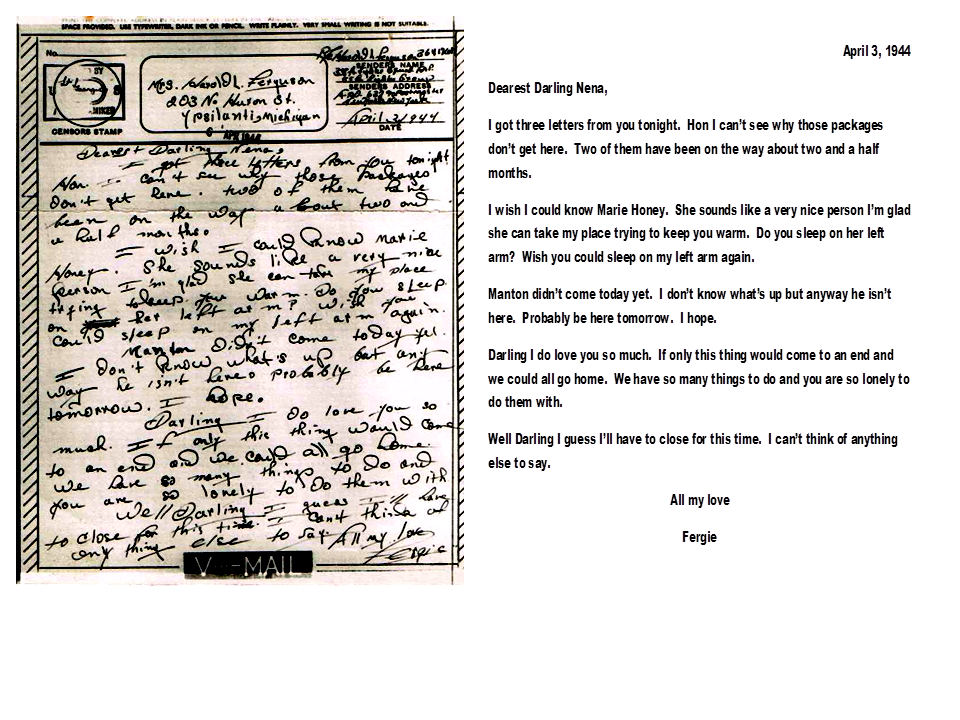 SPACE PROVIDED. USE TYPEWRITER, DARK INK OR PENCIL. WRITE PLAINLY. VERY SMALL WRITING IS NOT SUITABLE.
No.
CENSORS STAMP
Mrs. Harold L. Ferguson
203 No Huron St.
Ypsilanti, Michigan
SENDERS NAME
SENDERS ADDRESS
April 3, 1944
DATE
Dearest Darling Nena,
I got three letters from you tonight
Hon. I can't see why those packages
don't get here. two of them have
been on the way about two and
a half months.
I wish I could know Marie
Honey. She sounds like a very nice
person I'm glad she can take my place
trying to keep you warm. Do you sleep
on her left arm? Wish you
could sleep on my left arm again.
Manton didn't come today yet.
I don't know what's up but any
way he isn't here. probably be here
tomorrow. I hope.
Darling I do love you so
much. If only this thing would come
to an end and we could all go home.
We have so many things to do and
you are so lonely to do them with
Well Darling I guess I'll have
to close for this time. I can't think of
any thing else to say All my love
Fergie
V-MAIL
April 3, 1944
Dearest Darling Nena,
I got three letters from you tonight. Hon I can't see why those packages
don't get here. Two of them have been on the way about two and a half
months.
I wish I could know Marie Honey. She sounds like a very nice person I'm glad
she can take my place trying to keep you warm. Do you sleep on her left
arm? Wish you could sleep on my left arm again.
Manton didn't come today yet. I don't know what's up but anyway he isn't
here. Probably be here tomorrow. I hope.
Darling I do love you so much. If only this thing would come to an end and
we could all go home. We have so many things to do and you are so lonely to
do them with.
Well Darling I guess I'll have to close for this time. I can't think of anything
else to say.
All my love
Fergie